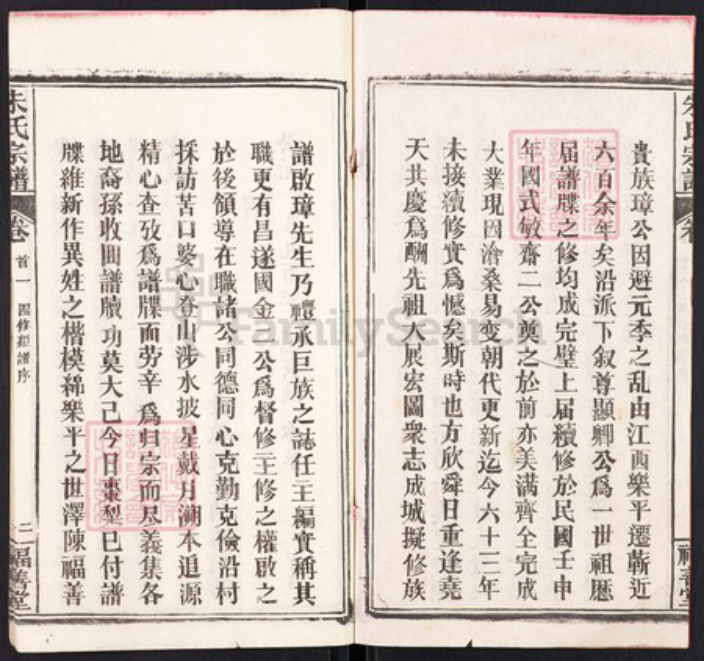 貴族璋公因避元季之乱由江西樂平遷蘄近
六百余年矣沿派下叙尊顯卿公爲一世祖歷
届譜牒之修均成完璧上届續修於民國壬申
年國式敏齋二公奠之於前亦美满齊全完成
大業現因滄桑易变朝代更新迄今六十三年
未接續修實爲憾矣斯時也方欣舜日重逢堯
天共慶爲酬先祖大展宏圖衆志成城擬修族
譜啟璋先生乃禮承巨族之誌任主編實稱其
職更有昌遂國金二公爲督修主修之權啟之
於後領導在職諸公同德同心克勤克儉沿村
採訪苦口婆心登山涉水披星戴月溯本追源
精心查攷爲譜牒而劳辛爲归宗而尽義集各
地裔孫收囬譜牘功莫大己今日棗梨已付譜
牒維新作異姓之楷模綿樂平之世澤陳福善
朱氏宗譜
卷首一
四修類譜序
二
福善堂
FamilySearch